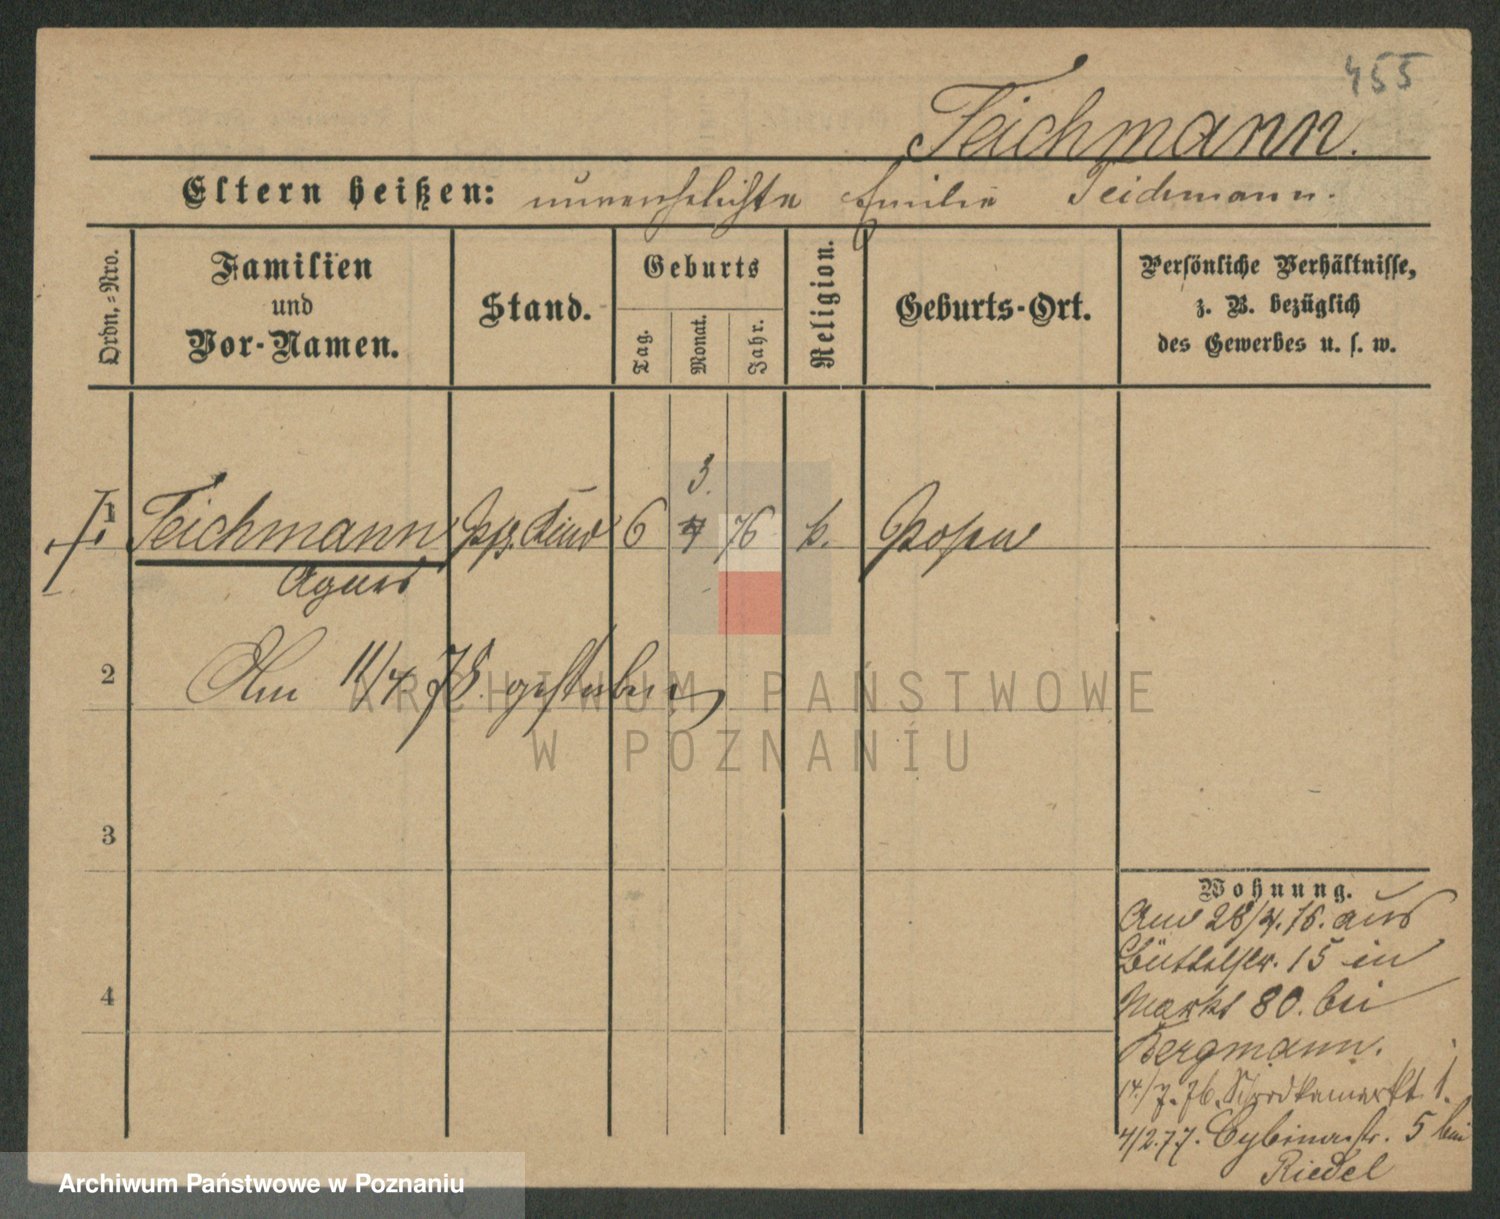 455
Teichmann.
Eltern heißen: unverehelichte Emilie Teichmann.
Ordn.=Nro.
Familien
und
Vor-Namen.
Stand.
Geburts
Tag.
Monat.
Jahr.
Religion.
Geburts-Ort.
Persönliche Verhältnisse,
z. B. bezüglich
des Gewerbes u. s. w.
3.
1 Teichmann Pfl. Kind 6 4 76 k. Posen
Agnes
2 Am 11/4 78. gestorben
3
4
Wohnung.
Am 28/4.76. aus
Büttelstr. 15 in
Markt 80. bei
Bergmann.
14/7.76. 1.
4/2.77. Cybinastr. 5 bei
Riedel
ARCHIWUM PAŃSTWOWE
W POZNANIU
Archiwum Państwowe w Poznaniu